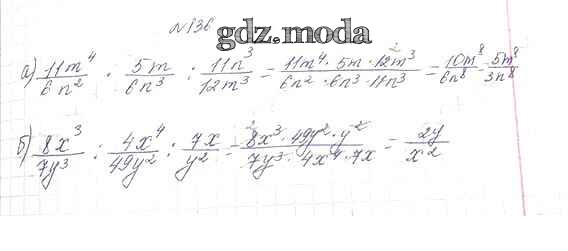 №136
gdz.moda
а) 11m⁴/6n² · 5m/6n³ : 11n³/12m³ = 11m⁴ · 5m · 12m³/6n² · 6n³ · 11n³ = 10m⁸/6n⁸ = 5m⁸/3n⁸
б) 8x³/7y³ : 4x⁴/49y² : 7x/y² = 8x³ · 49y² · y²/7y³ · 4x⁴ · 7x = 2y/x²